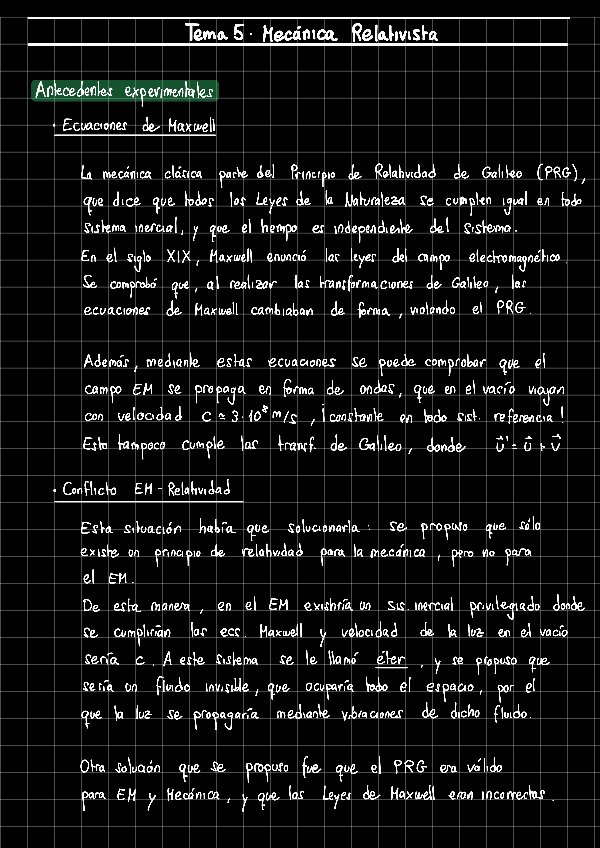 Tema 5 · Mecánica Relativista
Antecedentes experimentales
· Ecuaciones de Maxwell
La mecánica clásica parte del Principio de Relatividad de Galileo (PRG),
que dice que todas las Leyes de la Naturaleza se cumplen igual en todo
sistema inercial, y que el tiempo es independiente del sistema.
En el siglo XIX, Maxwell enunció las leyes del campo electromagnético.
Se comprobó que, al realizar las transformaciones de Galileo, las
ecuaciones de Maxwell cambiaban de forma, violando el PRG.
Además, mediante estas ecuaciones se puede comprobar que el
campo EM se propaga en forma de ondas, que en el vacío viajan
con velocidad c ≃ 3·10⁸ m/s, ¡constante en todo sist. referencia!
Esto tampoco cumple las transf. de Galileo, donde u⃗' = u⃗ + v⃗
· Conflicto EM - Relatividad
Esta situación había que solucionarla: se propuso que sólo
existe un principio de relatividad para la mecánica, pero no para
el EM.
De esta manera, en el EM existiría un sis. inercial privilegiado donde
se cumplirían las ecs. Maxwell y velocidad de la luz en el vacío
sería c. A este sistema se le llamó éter, y se propuso que
sería un fluido invisible, que ocuparía todo el espacio, por el
que la luz se propagaría mediante vibraciones de dicho fluido.
Otra solución que se propuso fue que el PRG era válido
para EM y Mecánica, y que las Leyes de Maxwell eran incorrectas.